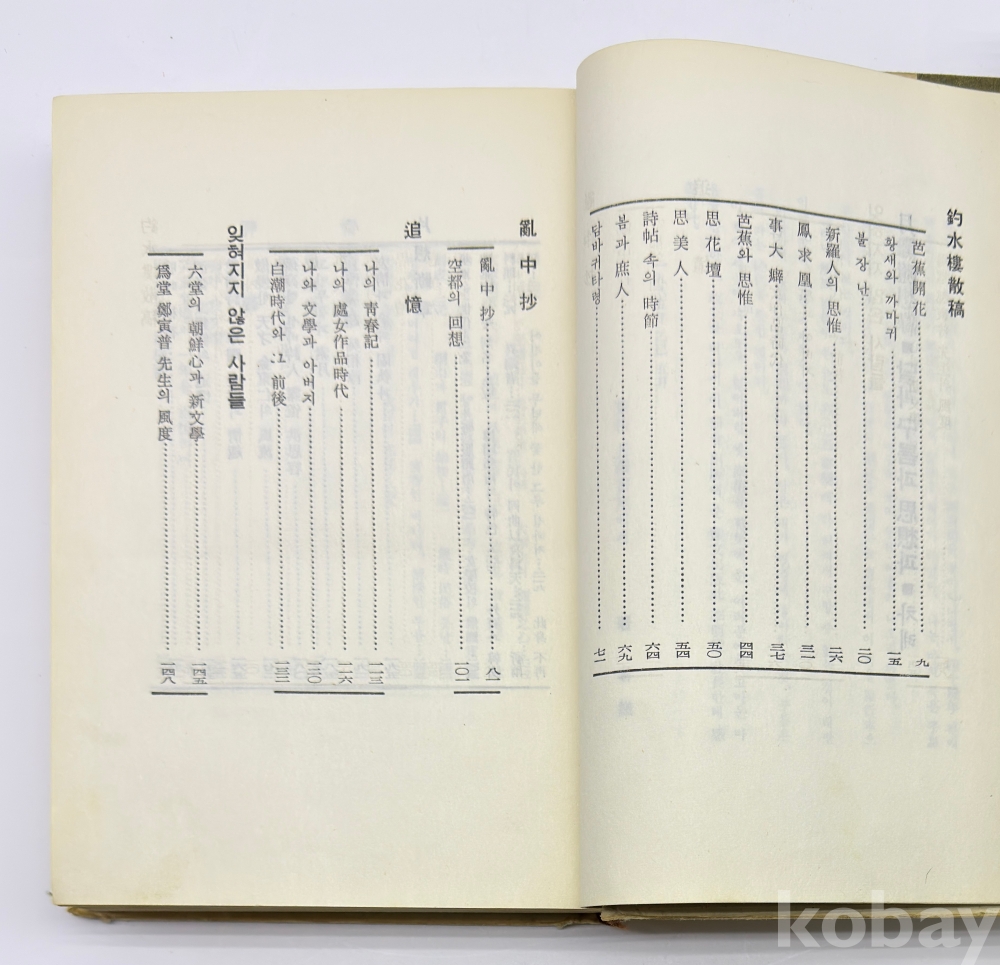 釣水樓散稿
芭蕉開花 九
황새와 까마귀 一五
불장난 二〇
新羅人의 思惟 二六
鳳求凰 三一
事大癖 三七
芭蕉와 思惟 四四
思花壇 五〇
思美人 五四
詩帖 속의 時節 六四
봄과 庶人 六九
담바귀타령 七一
亂中抄
亂中抄 八一
空都의 回想 一〇一
追憶
나의 靑春記 一一三
나의 處女作品時代 一一六
나와 文學과 아버지 一二〇
白潮時代와 그 前後 一三三
잊혀지지 않은 사람들
六堂의 朝鮮心과 新文學 一四五
爲堂 鄭寅普 先生의 風度 一四八
kobay